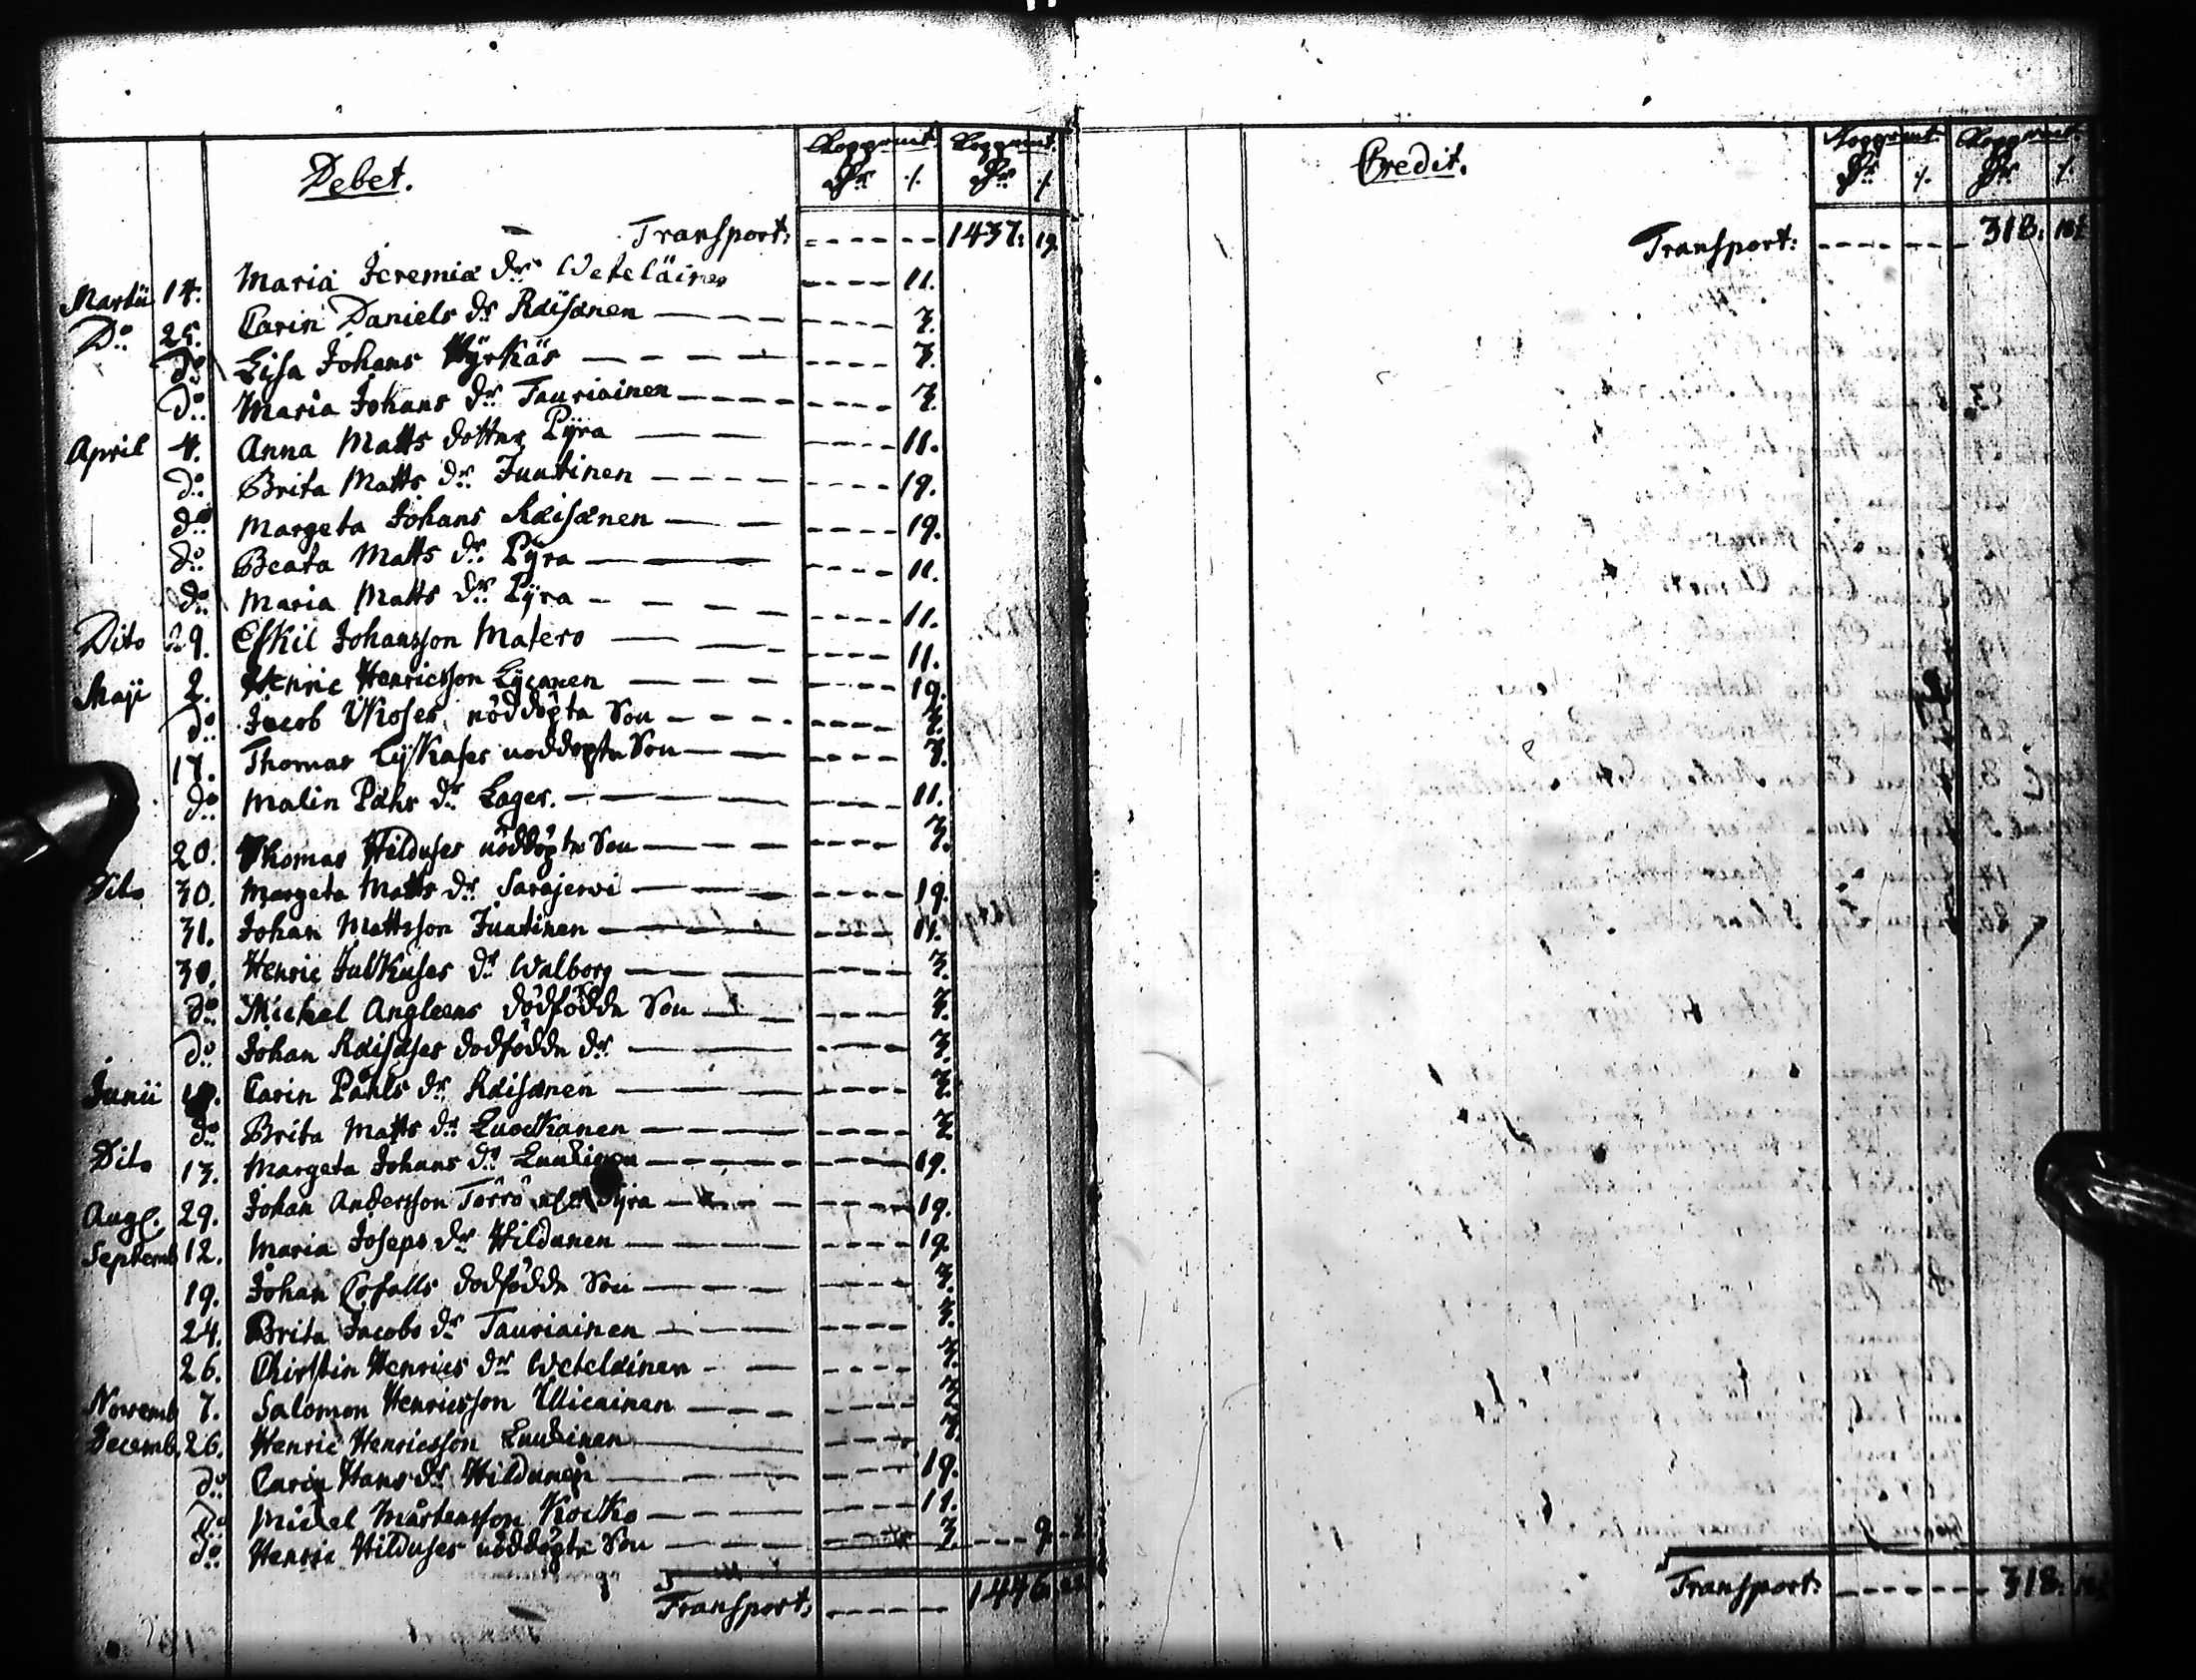 Debet.
Koppmt. Koppmt.
Dr ./. Dr ./.
Transport: 1437: 19.
Martii 14. Maria Jeremiæ dr Weteläinen 11.
Do 25. Carin Daniels dr Räisänen 3.
do Lisa Johans Kyrkäs 3.
do Maria Johans dr Tauriainen 3.
April 4. Anna Matts dotter Pyra 11.
do Brita Matts dr Juntinen 19.
do Margeta Johans Räisänen 19.
do Beata Matts dr Pyra 11.
do Maria Matts dr Pyra 11.
Dito 29. Eskil Johansson Matero 11.
Maji 2. Henric Henricsson 19.
do Jacob nöddöpta Son 3.
17. Thomas nöddöpta Son 3.
do Malin Påhs dr Lager. 11.
20. Thomas Hilduses nöddöpta Son 3.
Dito 30. Margeta Matts dr Sarajerwi 19.
31. Johan Mattsson Juntinen 11.
30. Henric Julkuses dr Walborg 3.
do Michel Angleens dödfödde Son 3.
do Johan Räisäses dödfödde dr 3.
Junii Carin Påhls dr Räisänen 3.
do Brita Matts dr Luockanen 3.
Dito 13. Margeta Johans dr 19.
Aug. 29. Johan Andersson Törrö Pyra 19.
Septemb 12. Maria Joseps dr Hildunen 19.
19. Johan Cofalls dödfödde Son 3.
24. Brita Jacobs dr Tauriainen 3.
26. Christin Henrics dr Weteläinen 3.
Novemb 7. Salomon Henricsson 3.
Decemb. 26. Henric Henricsson 3.
do Carin Hans dr Hildunen 19.
do Michel Mårtensson Kocko 11.
do Henric Hilduses nöddöpta Son 3. 9.
Transport: 1446.
Credit.
Koppmt. Koppmt.
Dr ./. Dr ./.
Transport: 318:
Transport: 318: